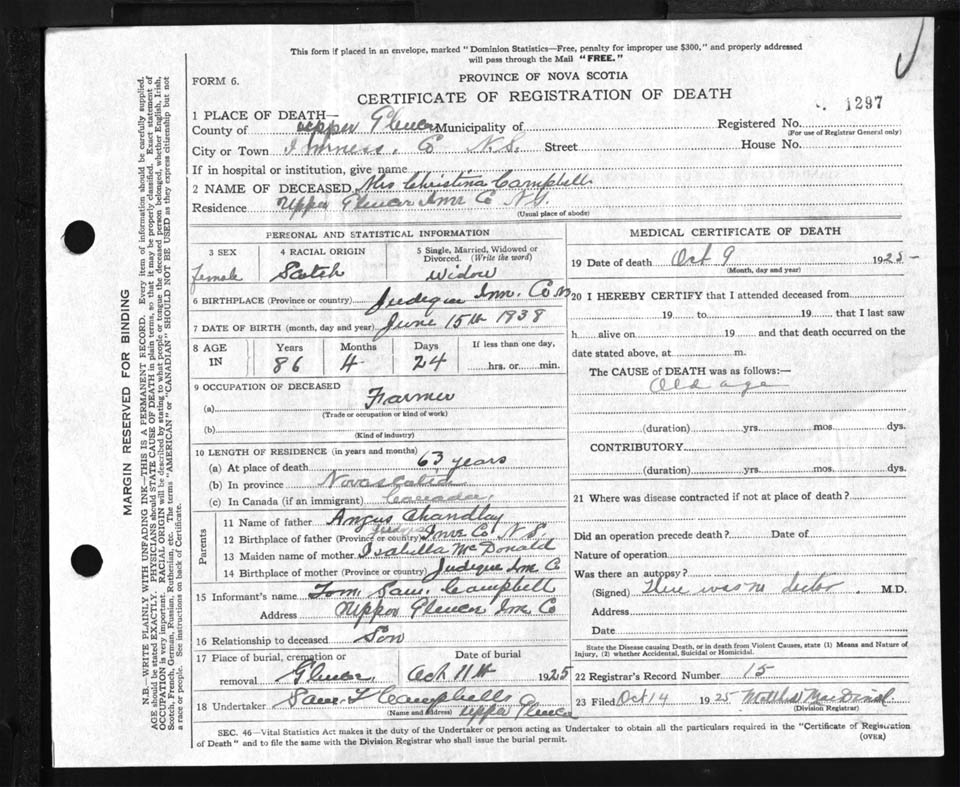 This form if placed in an envelope, marked "Dominion Statistics—Free, penalty for improper use $300," and properly addressed
will pass through the Mail "FREE."
FORM 6.
PROVINCE OF NOVA SCOTIA
CERTIFICATE OF REGISTRATION OF DEATH
1297
1 PLACE OF DEATH—
County of Upper Glencoe Municipality of
Registered No.
(For use of Registrar General only)
City or Town Inverness, Co N.S. Street
House No.
If in hospital or institution, give name
2 NAME OF DECEASED Mrs Christina Campbell
Residence Upper Glencoe Inve Co N.S.
(Usual place of abode)
PERSONAL AND STATISTICAL INFORMATION
3 SEX
female
4 RACIAL ORIGIN
Scotch
5 Single, Married, Widowed or
Divorced. (Write the word)
Widow
6 BIRTHPLACE (Province or country) Judique Inv. Co NS
7 DATE OF BIRTH (month, day and year) June 15th 1838
8 AGE
IN
Years
86
Months
4
Days
24
If less than one day,
hrs. or min.
9 OCCUPATION OF DECEASED
(a) Farmer
(Trade or occupation or kind of work)
(b)
(Kind of industry)
10 LENGTH OF RESIDENCE (in years and months)
(a) At place of death 63 years
(b) In province Nova Scotia
(c) In Canada (if an immigrant) Canada
Parents
11 Name of father Angus Chandlay
12 Birthplace of father (Province or country) Judique Inve Co N.S.
13 Maiden name of mother Isabella McDonald
14 Birthplace of mother (Province or country) Judique Inv Co
15 Informant's name Tom Sam Campbell
Address Upper Glencoe Inv Co
16 Relationship to deceased Son
17 Place of burial, cremation or
removal Glencoe
Date of burial
Oct 11th 1925
18 Undertaker Sam T Campbells
(Name and Address) Upper Glencoe
MEDICAL CERTIFICATE OF DEATH
19 Date of death Oct 9 1925
(Month, day and year)
20 I HEREBY CERTIFY that I attended deceased from
19 to 19 that I last saw
h alive on 19 and that death occurred on the
date stated above, at m.
The CAUSE of DEATH was as follows:—
Old age
(duration) yrs. mos. dys.
CONTRIBUTORY
(duration) yrs. mos. dys.
21 Where was disease contracted if not at place of death?
Did an operation precede death? Date of
Nature of operation
Was there an autopsy?
(Signed) There was no doctor M.D.
Address
Date
State the Disease causing Death, or in death from Violent Causes, state (1) Means and Nature of
Injury, (2) whether Accidental, Suicidal or Homicidal.
22 Registrar's Record Number 15
23 Filed Oct 14 1925 MacDonald
(Division Registrar)
SEC. 46—Vital Statistics Act makes it the duty of the Undertaker or person acting as Undertaker to obtain all the particulars required in the "Certificate of Registration
of Death" and to file the same with the Division Registrar who shall issue the burial permit.
(OVER)
MARGIN RESERVED FOR BINDING
N.B.—WRITE PLAINLY WITH UNFADING INK—THIS IS A PERMANENT RECORD. Every item of information should be carefully supplied.
AGE should be stated EXACTLY. PHYSICIANS should STATE CAUSE OF DEATH in plain terms, so that it may be properly classified. Exact statement of
OCCUPATION is very important. RACIAL ORIGIN will be described by stating to what people or tongue the deceased person belonged, whether English, Irish,
Scotch, French, German, Russian, Ruthenian, etc. The terms "AMERICAN" or "CANADIAN" SHOULD NOT BE USED as they express citizenship but not
a race or people. See instructions on back of Certificate.